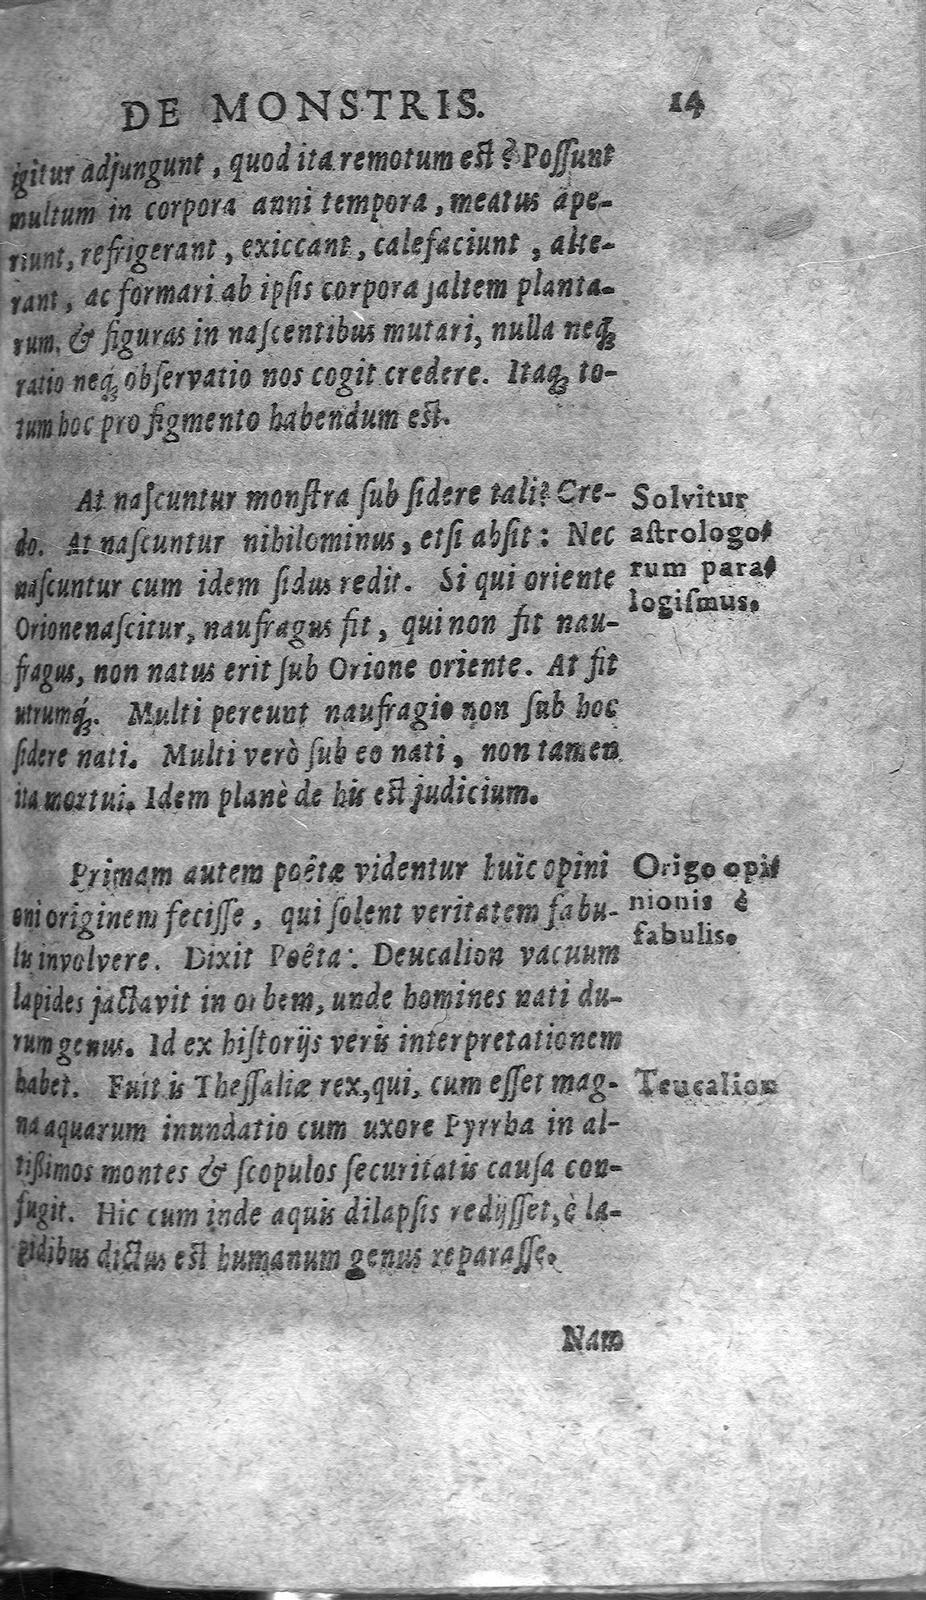 DE MONSTRIS. 14
igitur adjungunt, quod ita remotum est? Poſſunt
multum in corpora anni tempora, meatus ape-
riunt, refrigerant, exiccant, calefaciunt, alte-
rant, ac formari ab ipſis corpora ſaltem planta-
rum, & figuras in naſcentibus mutari, nulla neq́ꝫ
ratio neq́ꝫ obſervatio nos cogit credere. Itaqꝫ to-
tum hoc pro figmento habendum est.
At naſcuntur monſtra ſub ſidere tali? Cre-
do. At naſcuntur nihilominus, etſi abſit: Nec
naſcuntur cum idem ſidus redit. Si qui oriente
Orione naſcitur, naufragus fit, qui non fit nau-
fragus, non natus erit ſub Orione oriente. At fit
utrumq́ꝫ. Multi pereunt naufragio non ſub hoc
ſidere nati. Multi verò ſub eo nati, non tamen
ita mortui. Idem planè de his est judicium.
Solvitur
aſtrologo-
rum para-
logiſmus.
Primam autem poêtæ videntur huic opini
oni originem feciſſe, qui ſolent veritatem fabu-
lis involvere. Dixit Poêta: Deucalion vacuum
lapides jactavit in orbem, unde homines nati du-
rum genus. Id ex hiſtorijs veris interpretationem
habet. Fuit is Theſſaliæ rex, qui, cum eſſet mag-
na aquarum inundatio cum uxore Pyrrha in al-
tißimos montes & ſcopulos ſecuritatis cauſa con-
fugit. Hic cum inde aquis dilapſis redijſſet, è la-
pidibus dictus est humanum genus reparaſſe.
Origo opi-
nionis è
fabulis.
Teucalion
Nam